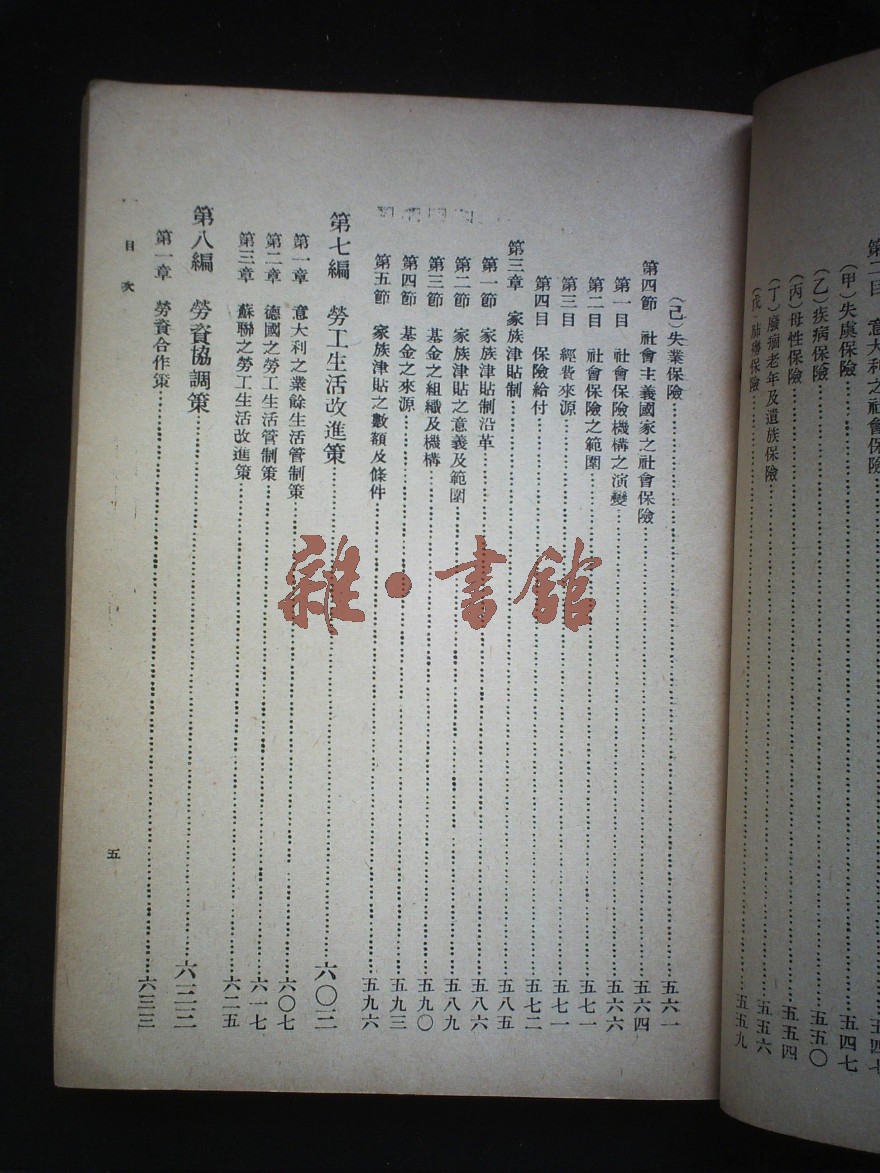 第二目 意大利之社會保險……五四七
(甲)失虞保險……五四七
(乙)疾病保險……五五〇
(丙)母性保險……五五四
(丁)廢痼老年及遺族保險……五五六
(戊)肺癆保險……五五九
(己)失業保險……五六一
第四節 社會主義國家之社會保險……五六四
第一目 社會保險機構之演變……五六六
第二目 社會保險之範圍……五七一
第三目 經費來源……五七一
第四目 保險給付……五七二
第三章 家族津貼制……五八五
第一節 家族津貼制沿革……五八六
第二節 家族津貼之意義及範圍……五八九
第三節 基金之組織及機構……五九〇
第四節 基金之來源……五九三
第五節 家族津貼之數額及條件……五九六
第七編 勞工生活改進策……六〇二
第一章 意大利之業餘生活管制策……六〇七
第二章 德國之勞工生活管制策……六一七
第三章 蘇聯之勞工生活改進策……六二五
第八編 勞資協調策……六三三
第一章 勞資合作策……六三三
目次
五
雜·書館